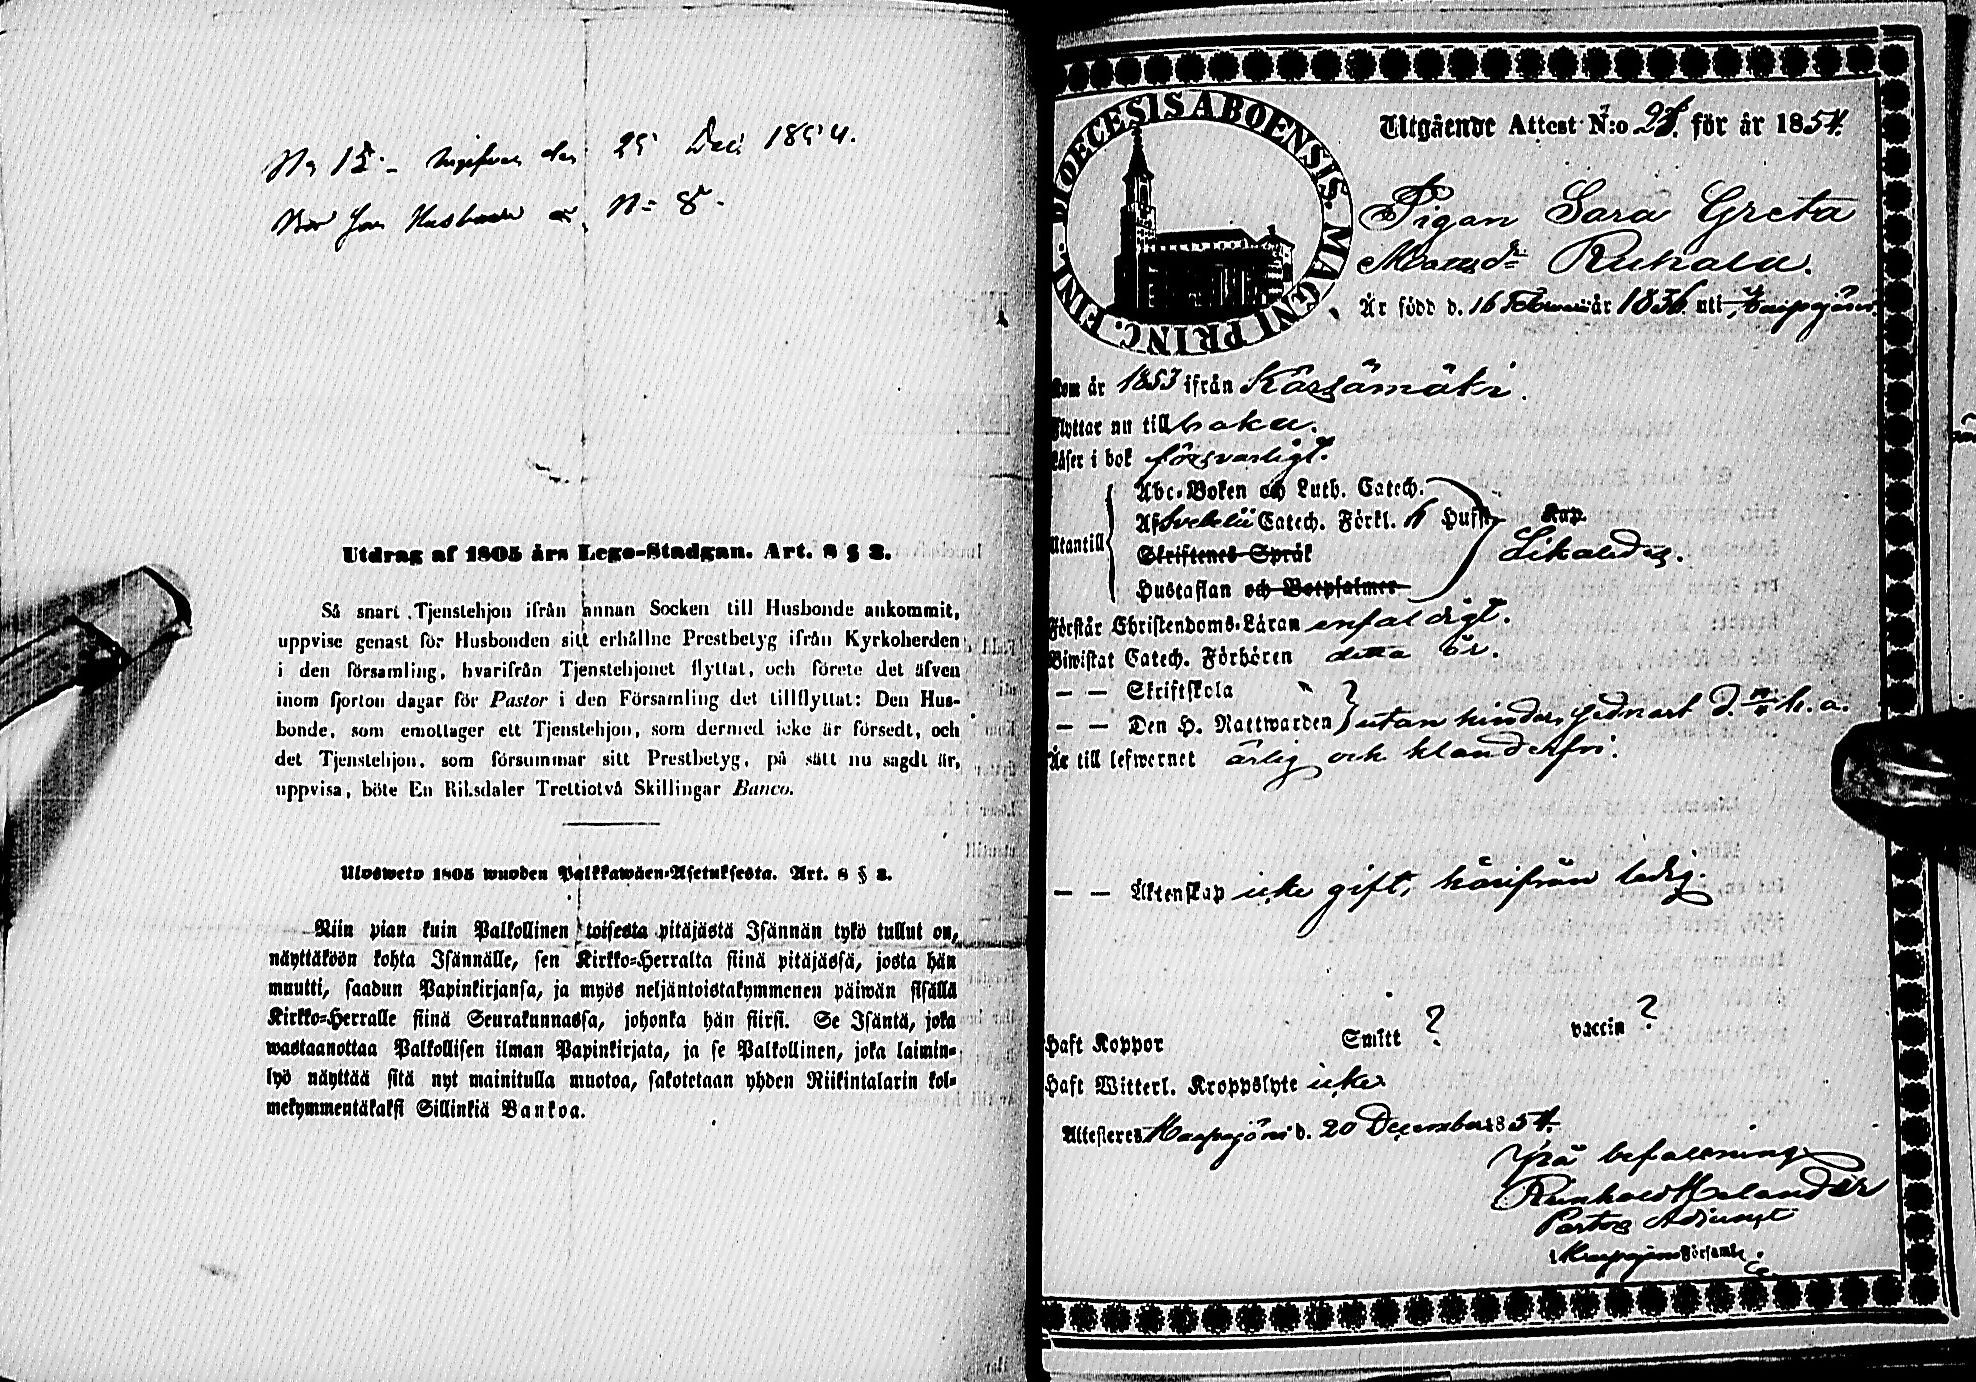 25 Dec 1854.
Utdrag af 1805 års Lego-Stadgan. Art. 8 § 3.
Så snart Tjenstehjon ifrån annan Socken till Husbonde ankommit,
uppvise genast för Husbonden sitt erhållne Prestbetyg ifrån Kyrkoherden
i den församling, hvarifrån Tjenstehjonet flyttat, och förete det äfven
inom fjorton dagar för Pastor i den Församling det tillflyttat: Den Hus-
bonde, som emottager ett Tjenstehjon, som dermed icke är försedt, och
det Tjenstehjon, som försummar sitt Prestbetyg, på sätt nu sagdt är,
uppvisa, böte En Riksdaler Trettiotvå Skillingar Banco.
Ulosweto 1805 wuoden Palkkawäen-Asetuksesta. Art. 8 § 3.
Niin pian kuin Palkollinen toisesta pitäjästä Isännän tykö tullut on,
näyttäköön kohta Isännälle, sen Kirkko-Herralta siinä pitäjässä, josta hän
muutti, saadun Papinkirjansa, ja myös neljäntoistakymmenen päiwän sisällä
Kirkko-Herralle siinä Seurakunnassa, johonka hän siirsi. Se Isäntä, joka
wastaanottaa Palkollisen ilman Papinkirjata, ja se Palkollinen, joka laimin-
lyö näyttää sitä nyt mainitulla muotoa, sakotetaan yhden Riikintalarin kol-
mekymmentäkaksi Sillinkiä Bankoa.
DIOECESIS ABOENSIS. MAGNI PRINC. FINL.
Utgående Attest N:o för år 1854.
Pigan Sara Greta
Är född d. 16 Februari år 1836 uti
Kom år 1853 ifrån Kärsämäki.
Flyttar nu tillbaka.
Läser i bok försvarligt.
Abc-Boken och Luth. Catech.
Af Svebelii Catech. Förkl. Hufst. Kap.
Utantill Likaledes.
Skriftenes Språk
Hustaflan och Botpsalmer
Förstår Christendoms-Läran enfaldigt.
Biwistat Catech. Förhören detta år.
— — Skriftskola
— — Den H. Nattwarden utan hinder,
Är till lefwernet ärlig och klanderfri.
— — Äktenskap icke gift, härifrån ledig.
Haft Koppor Smitt ? vaccin ?
Haft Witterl. Kroppslyte icke
Attesteres d. 20 December 1854.
På befallning
Reinhold Helander
Pastors Adjunct
i Församl.